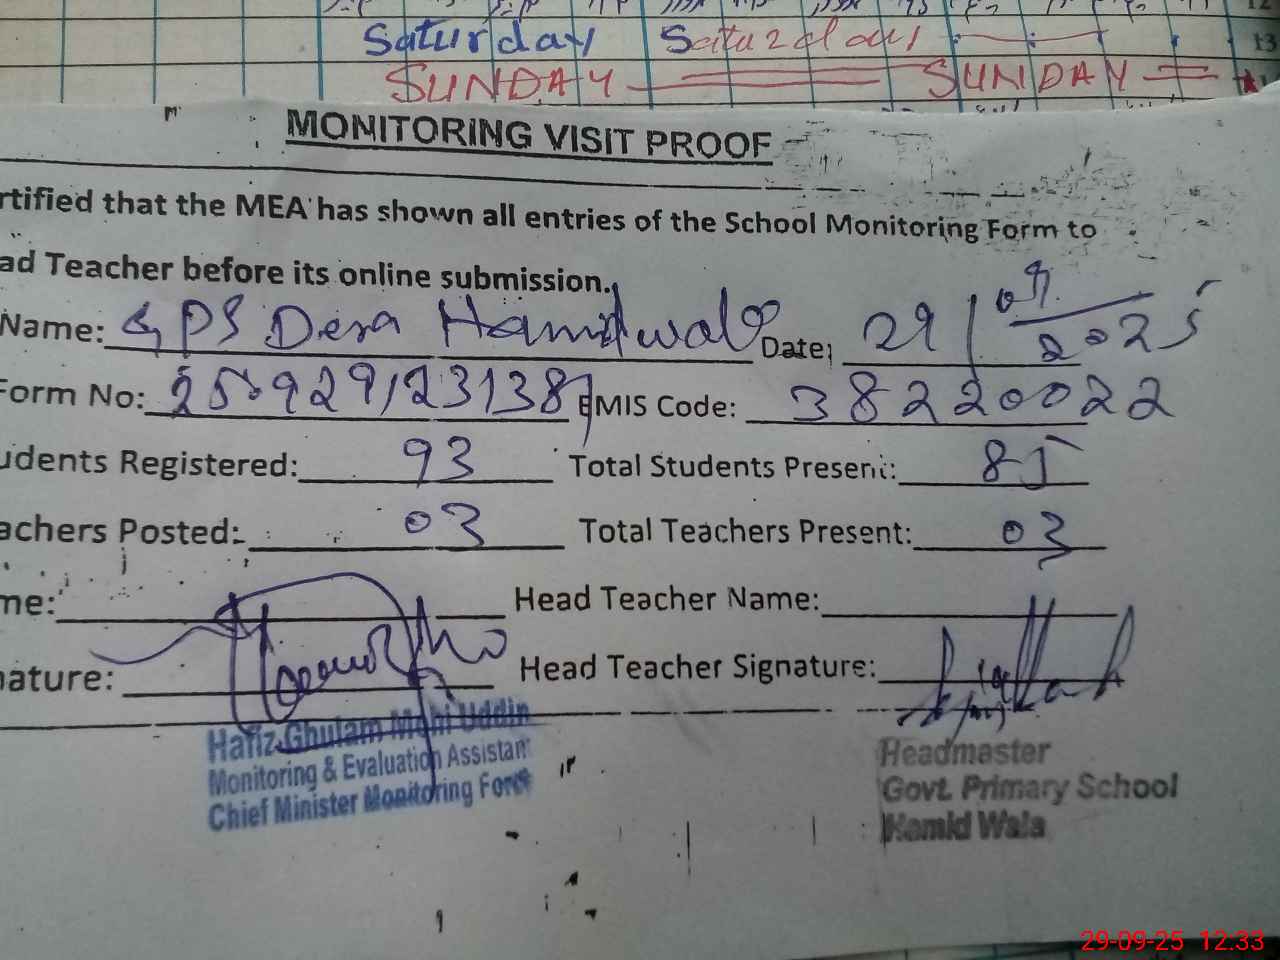 Saturday Saturday
SUNDAY SUNDAY
13
MONITORING VISIT PROOF
rtified that the MEA has shown all entries of the School Monitoring Form to
ad Teacher before its online submission.
Name: GPS Dera Hamidwala Date: 29/09/2025
Form No: 250929123138 EMIS Code: 38220022
udents Registered: 93 Total Students Present: 85
achers Posted: 03 Total Teachers Present: 03
me: Head Teacher Name:
nature: Head Teacher Signature:
Hafiz Ghulam Mohi Uddin
Monitoring & Evaluation Assistant
Chief Minister Monitoring Force
Headmaster
Govt. Primary School
Hamid Wala
29-09-25 12:33